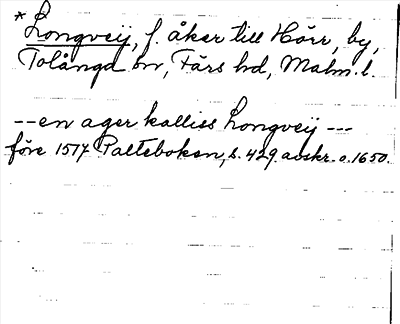 *Longveij, f. åker till Hörr, by,
Tolånga sn, Färs hd, Malm. l.
--en ager kalliss Longveij ---
före 1517 Palteboken, s. 429. avskr. o. 1650.